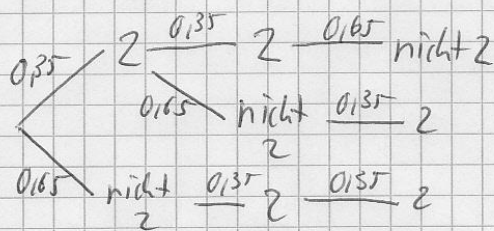 0,35 2 0,35 2 0,65 nicht 2
0,65 nicht 2 0,35 2
0,65 nicht 2 0,35 2 0,35 2